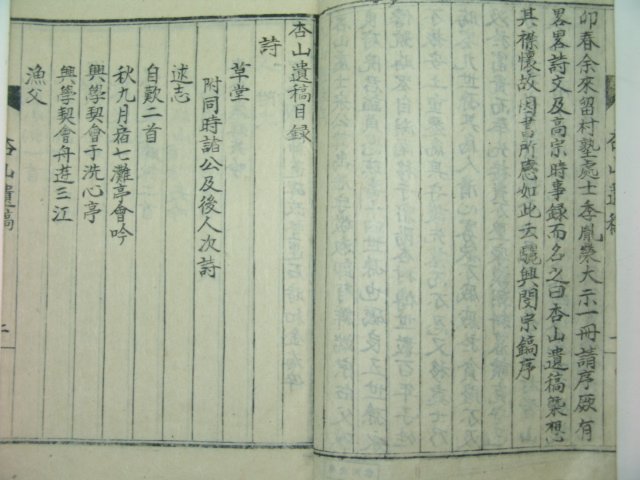 卯春余來留村塾處士季胤燮大示一冊請序厥有
畧畧詩文及高宗時事録而名之曰杏山遺稿槩想
其襟懷故因書所應如此云驪興閔宗鎬序
杏山遺稿目録
詩
草堂
附同時諸公及後人次詩
述志
自歎二首
秋九月宿七灘亭會吟
興學契會于洗心亭
興學契會舟遊三江
漁父
杏山遺稿